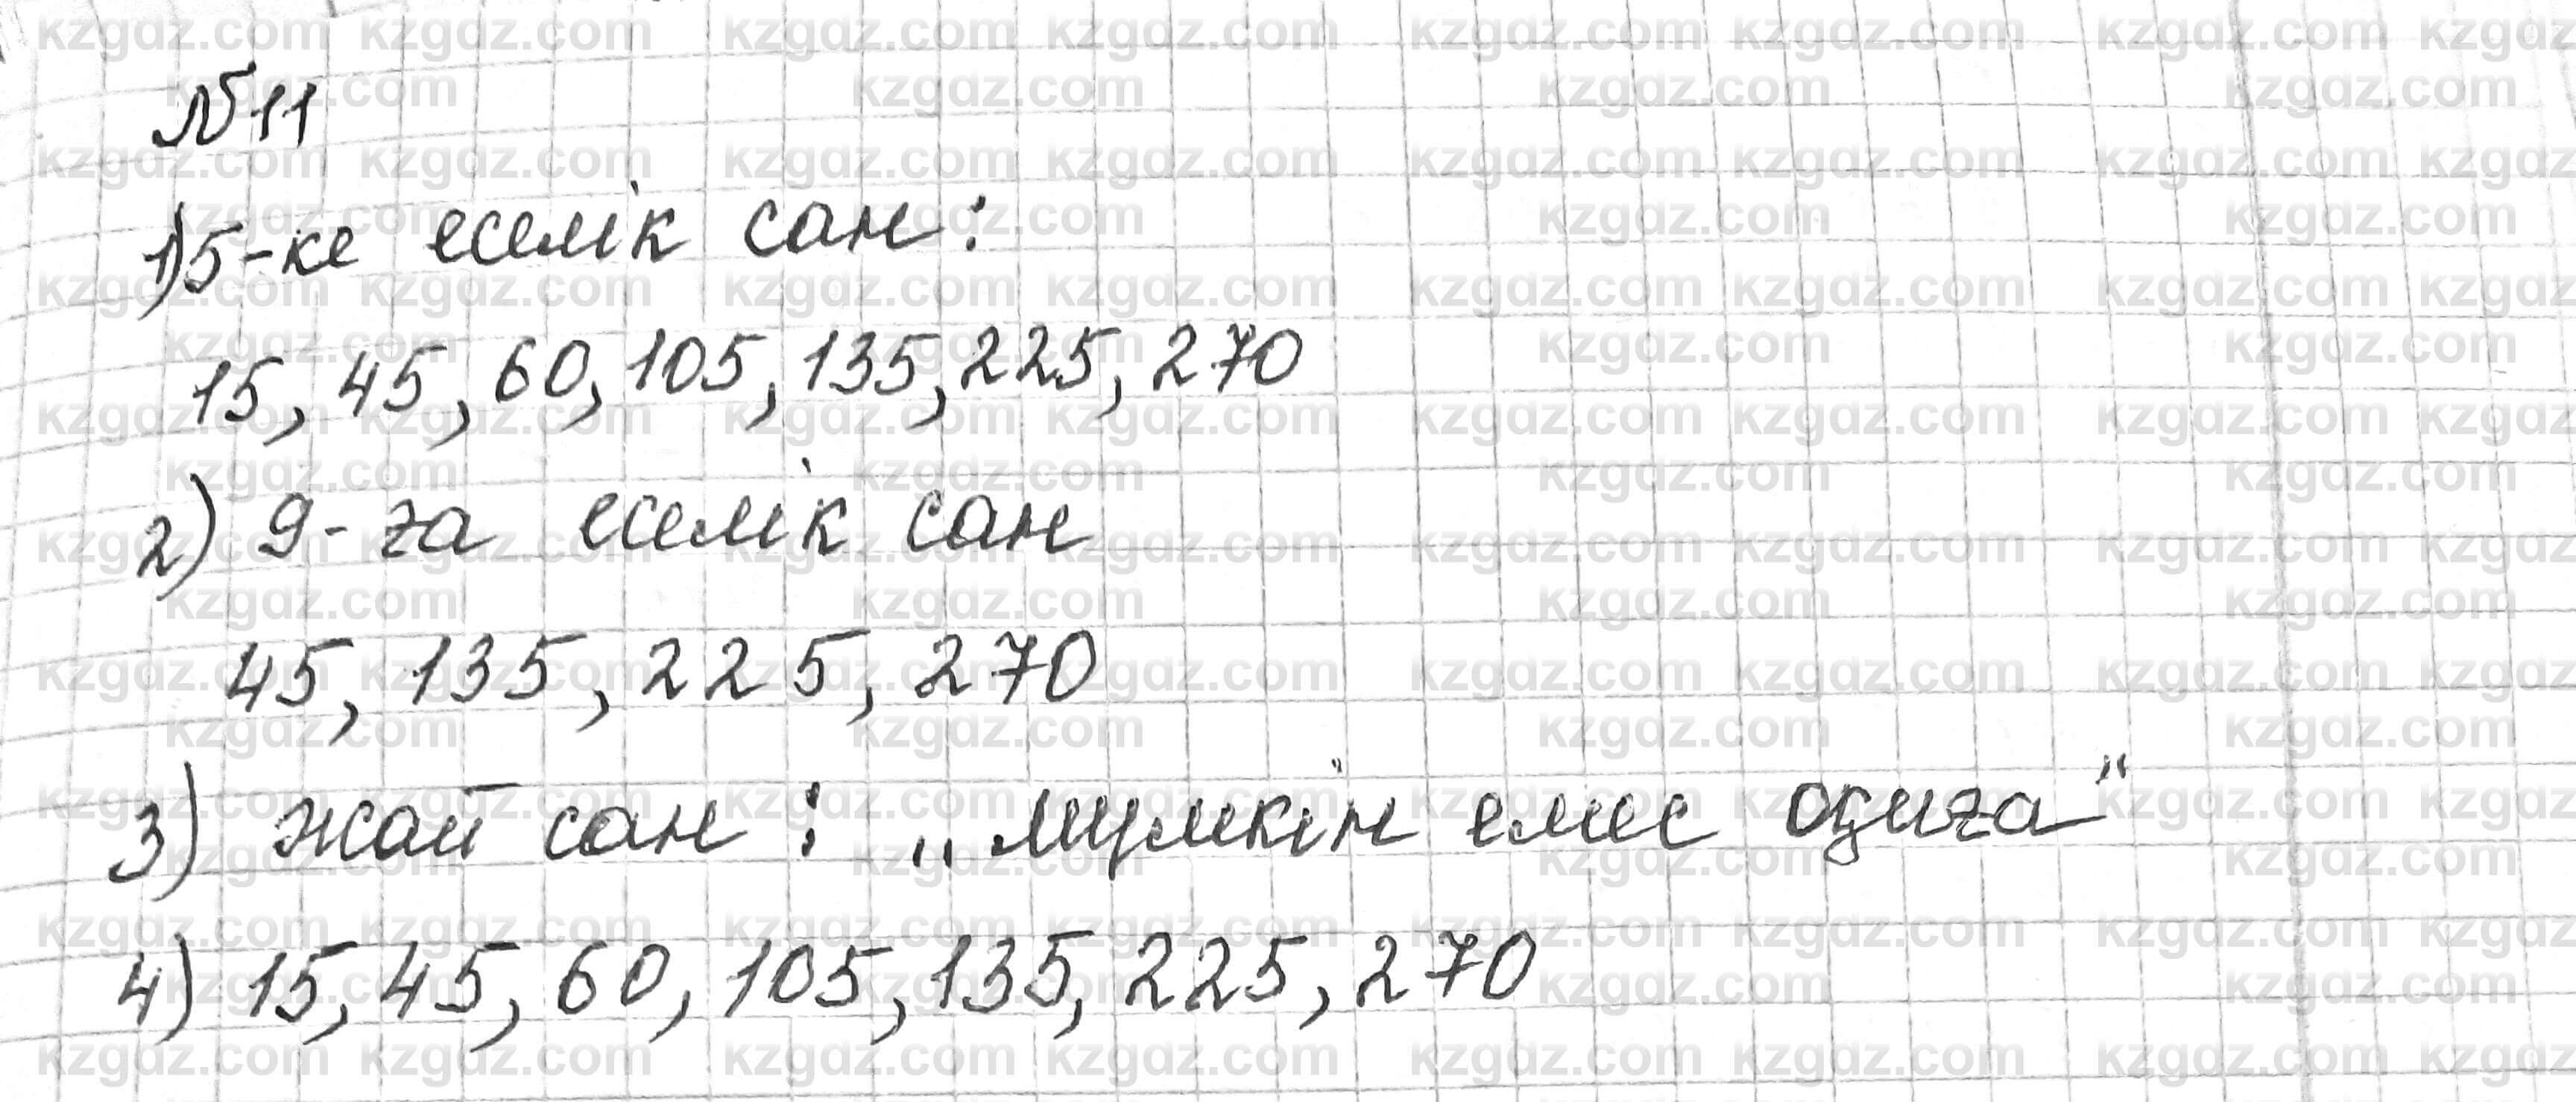 №11
1) 5-ке еселік сан:
15, 45, 60, 105, 135, 225, 270
2) 9-ға еселік сан
45, 135, 225, 270
3) жай сан: „мүмкін емес оқиға"
4) 15, 45, 60, 105, 135, 225, 270
kzgdz.com